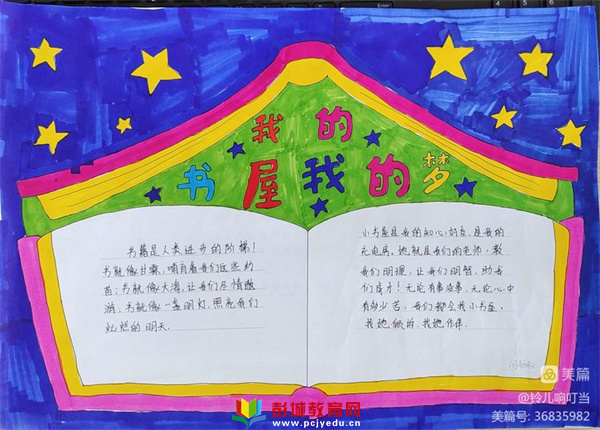 我的
书屋我的梦
书籍是人类进步的阶梯!
书就像甘露,哺育着我们这些幼
苗;书就像大海,让我们尽情遨
游;书就像一盏明灯,照亮我们
灿烂的明天。
小书屋是我的知心好友,是我的
充电房,她就是我们的老师,教
我们明理,让我们明智,助我
们成才!无论有啥故事,无论心中
有多少苦,我们都会找小书屋。
找她倾诉,找她作伴。
美篇
@铃儿响叮当
美篇号: 36835982
彭城教育网
www.pcjyedu.cn